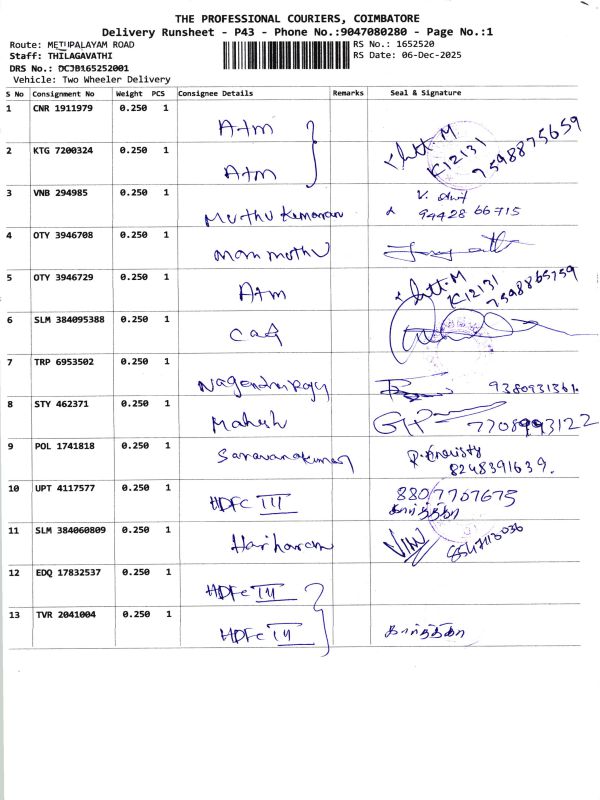 THE PROFESSIONAL COURIERS, COIMBATORE
Delivery Runsheet - P43 - Phone No.:9047080280 - Page No.:1
Route: METUPALAYAM ROAD RS No.: 1652520
Staff: THILAGAVATHI RS Date: 06-Dec-2025
DRS No.: DCJB165252001
Vehicle: Two Wheeler Delivery
S No Consignment No Weight PCS Consignee Details Remarks Seal & Signature
1 CNR 1911979 0.250 1 Atm K12131 7598875659
2 KTG 7200324 0.250 1 Atm
3 VNB 294985 0.250 1 Muthu Kumaran 94428 66715
4 OTY 3946708 0.250 1
5 OTY 3946729 0.250 1 Atm K12131
6 SLM 384095388 0.250 1
7 TRP 6953502 0.250 1 9380931361.
8 STY 462371 0.250 1 Mahesh 7708993122
9 POL 1741818 0.250 1 Saravanakumar 8248391639.
10 UPT 4117577 0.250 1 HDFC III 8807707675
கார்த்திகா
11 SLM 384060809 0.250 1 Hariharan
12 EDQ 17832537 0.250 1 HDFC
13 TVR 2041004 0.250 1 HDFC கார்த்திகா